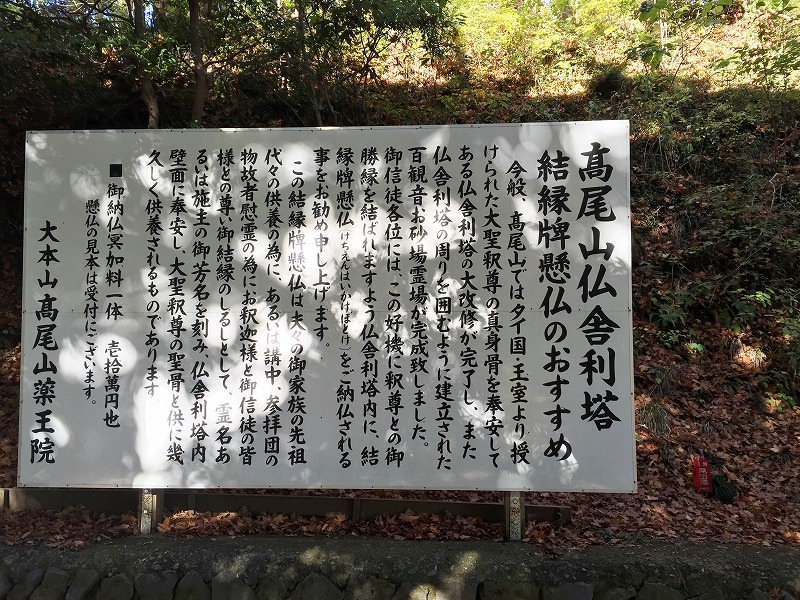 髙尾山仏舎利塔
結縁牌懸仏のおすすめ
今般、髙尾山ではタイ国王室より授
けられた大聖釈尊の真身骨を奉安して
ある仏舎利塔の大改修が完了し、また
仏舎利塔の周りを囲むように建立された
百観音お砂場霊場が完成致しました。
御信徒各位には、この好機に釈尊との御
勝縁を結ばれますよう仏舎利塔内に、結
縁牌懸仏(けちえんはいかけぼとけ)をご納仏される
事をお勧め申し上げます。
この結縁牌懸仏は夫々の御家族の先祖
代々の供養の為に、あるいは講中、参拝団の
物故者慰霊の為にお釈迦様と御信徒の皆
様との尊い御結縁のしるしとして、霊名あ
るいは施主の御芳名を刻み、仏舎利塔内
壁面に奉安し、大聖釈尊の聖骨と供に幾
久しく供養されるものであります。
■御納仏冥加料一体 壱拾萬円也
懸仏の見本は受付にございます。
大本山髙尾山薬王院